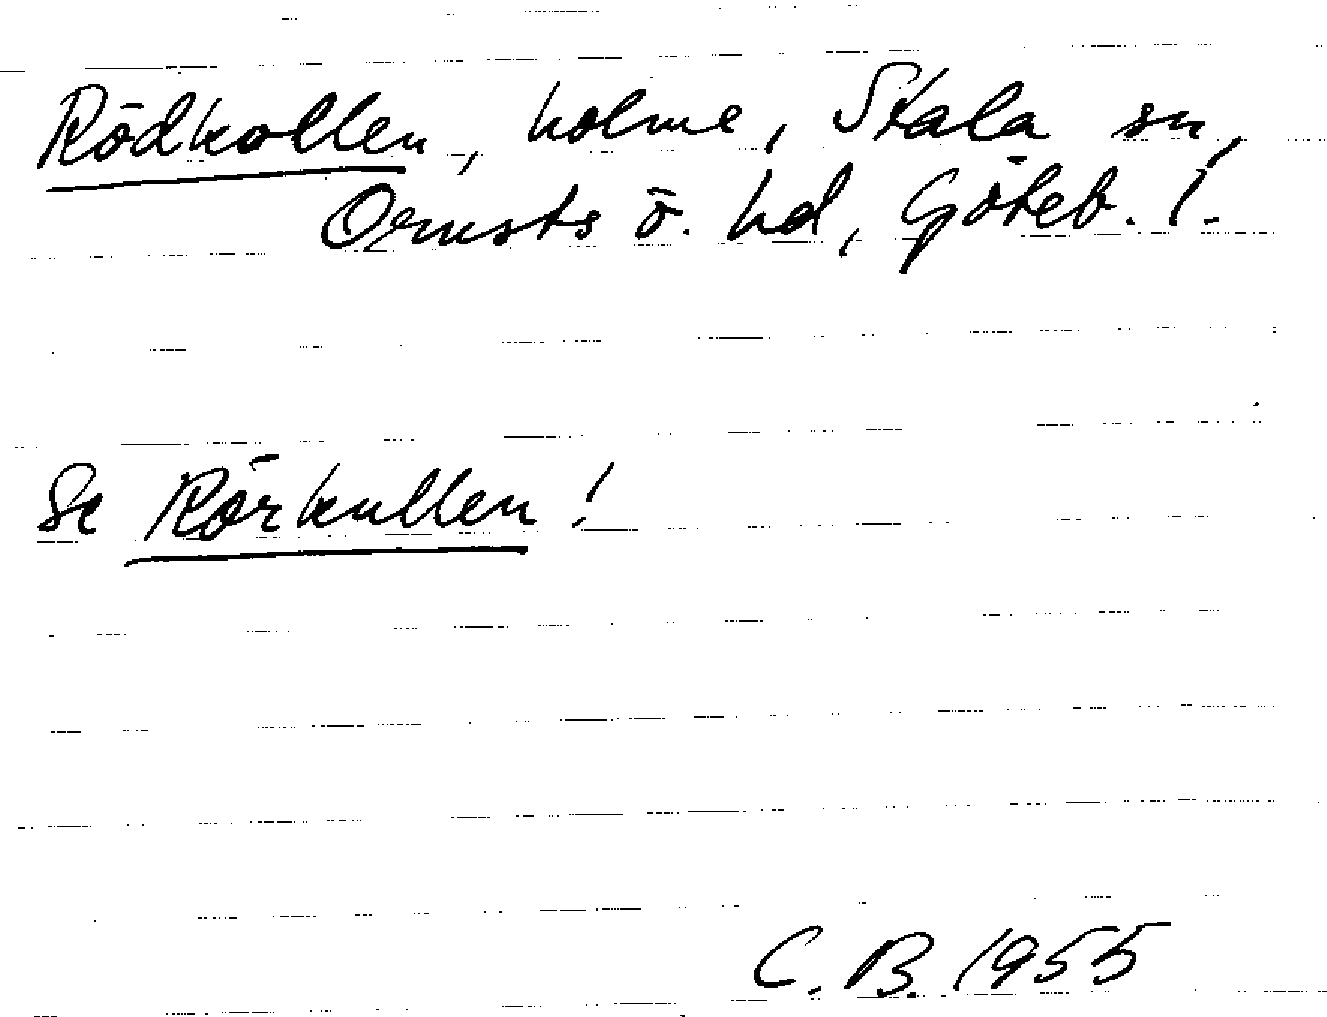 Rödkollen, holme, Skala sn,
Orusts ö. hd, Göteb. l.
Se Rörkullen!
C. B. 1955